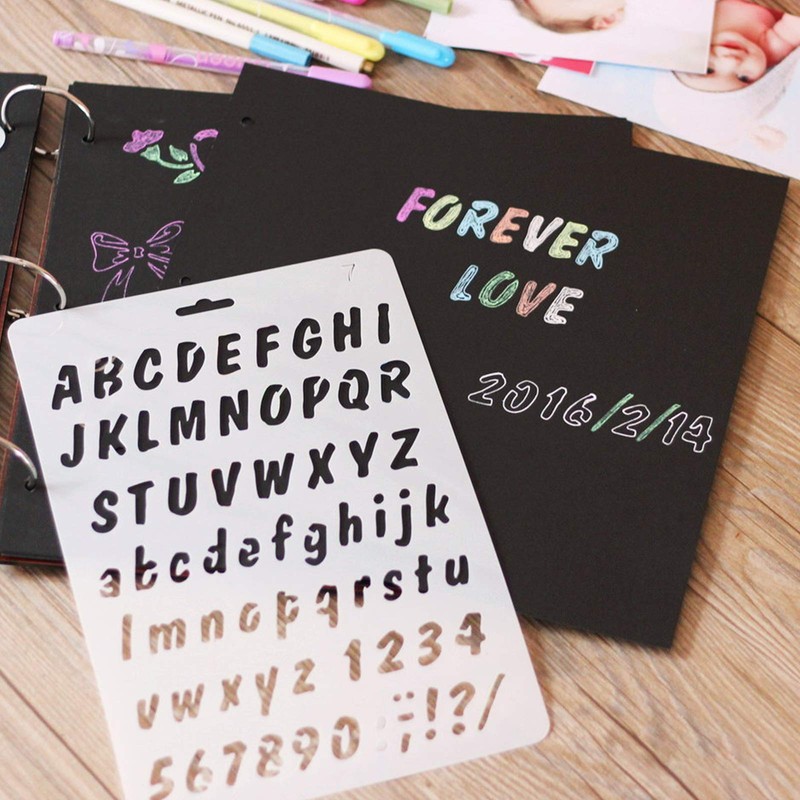 METALLIC PEN
FOREVER
LOVE
2016/2/14
7
ABCDEFGHI
JKLMNOPQR
STUVWXYZ
abcdefghijk
lmnopqrstu
vwxyz 1234
567890 :;!?/